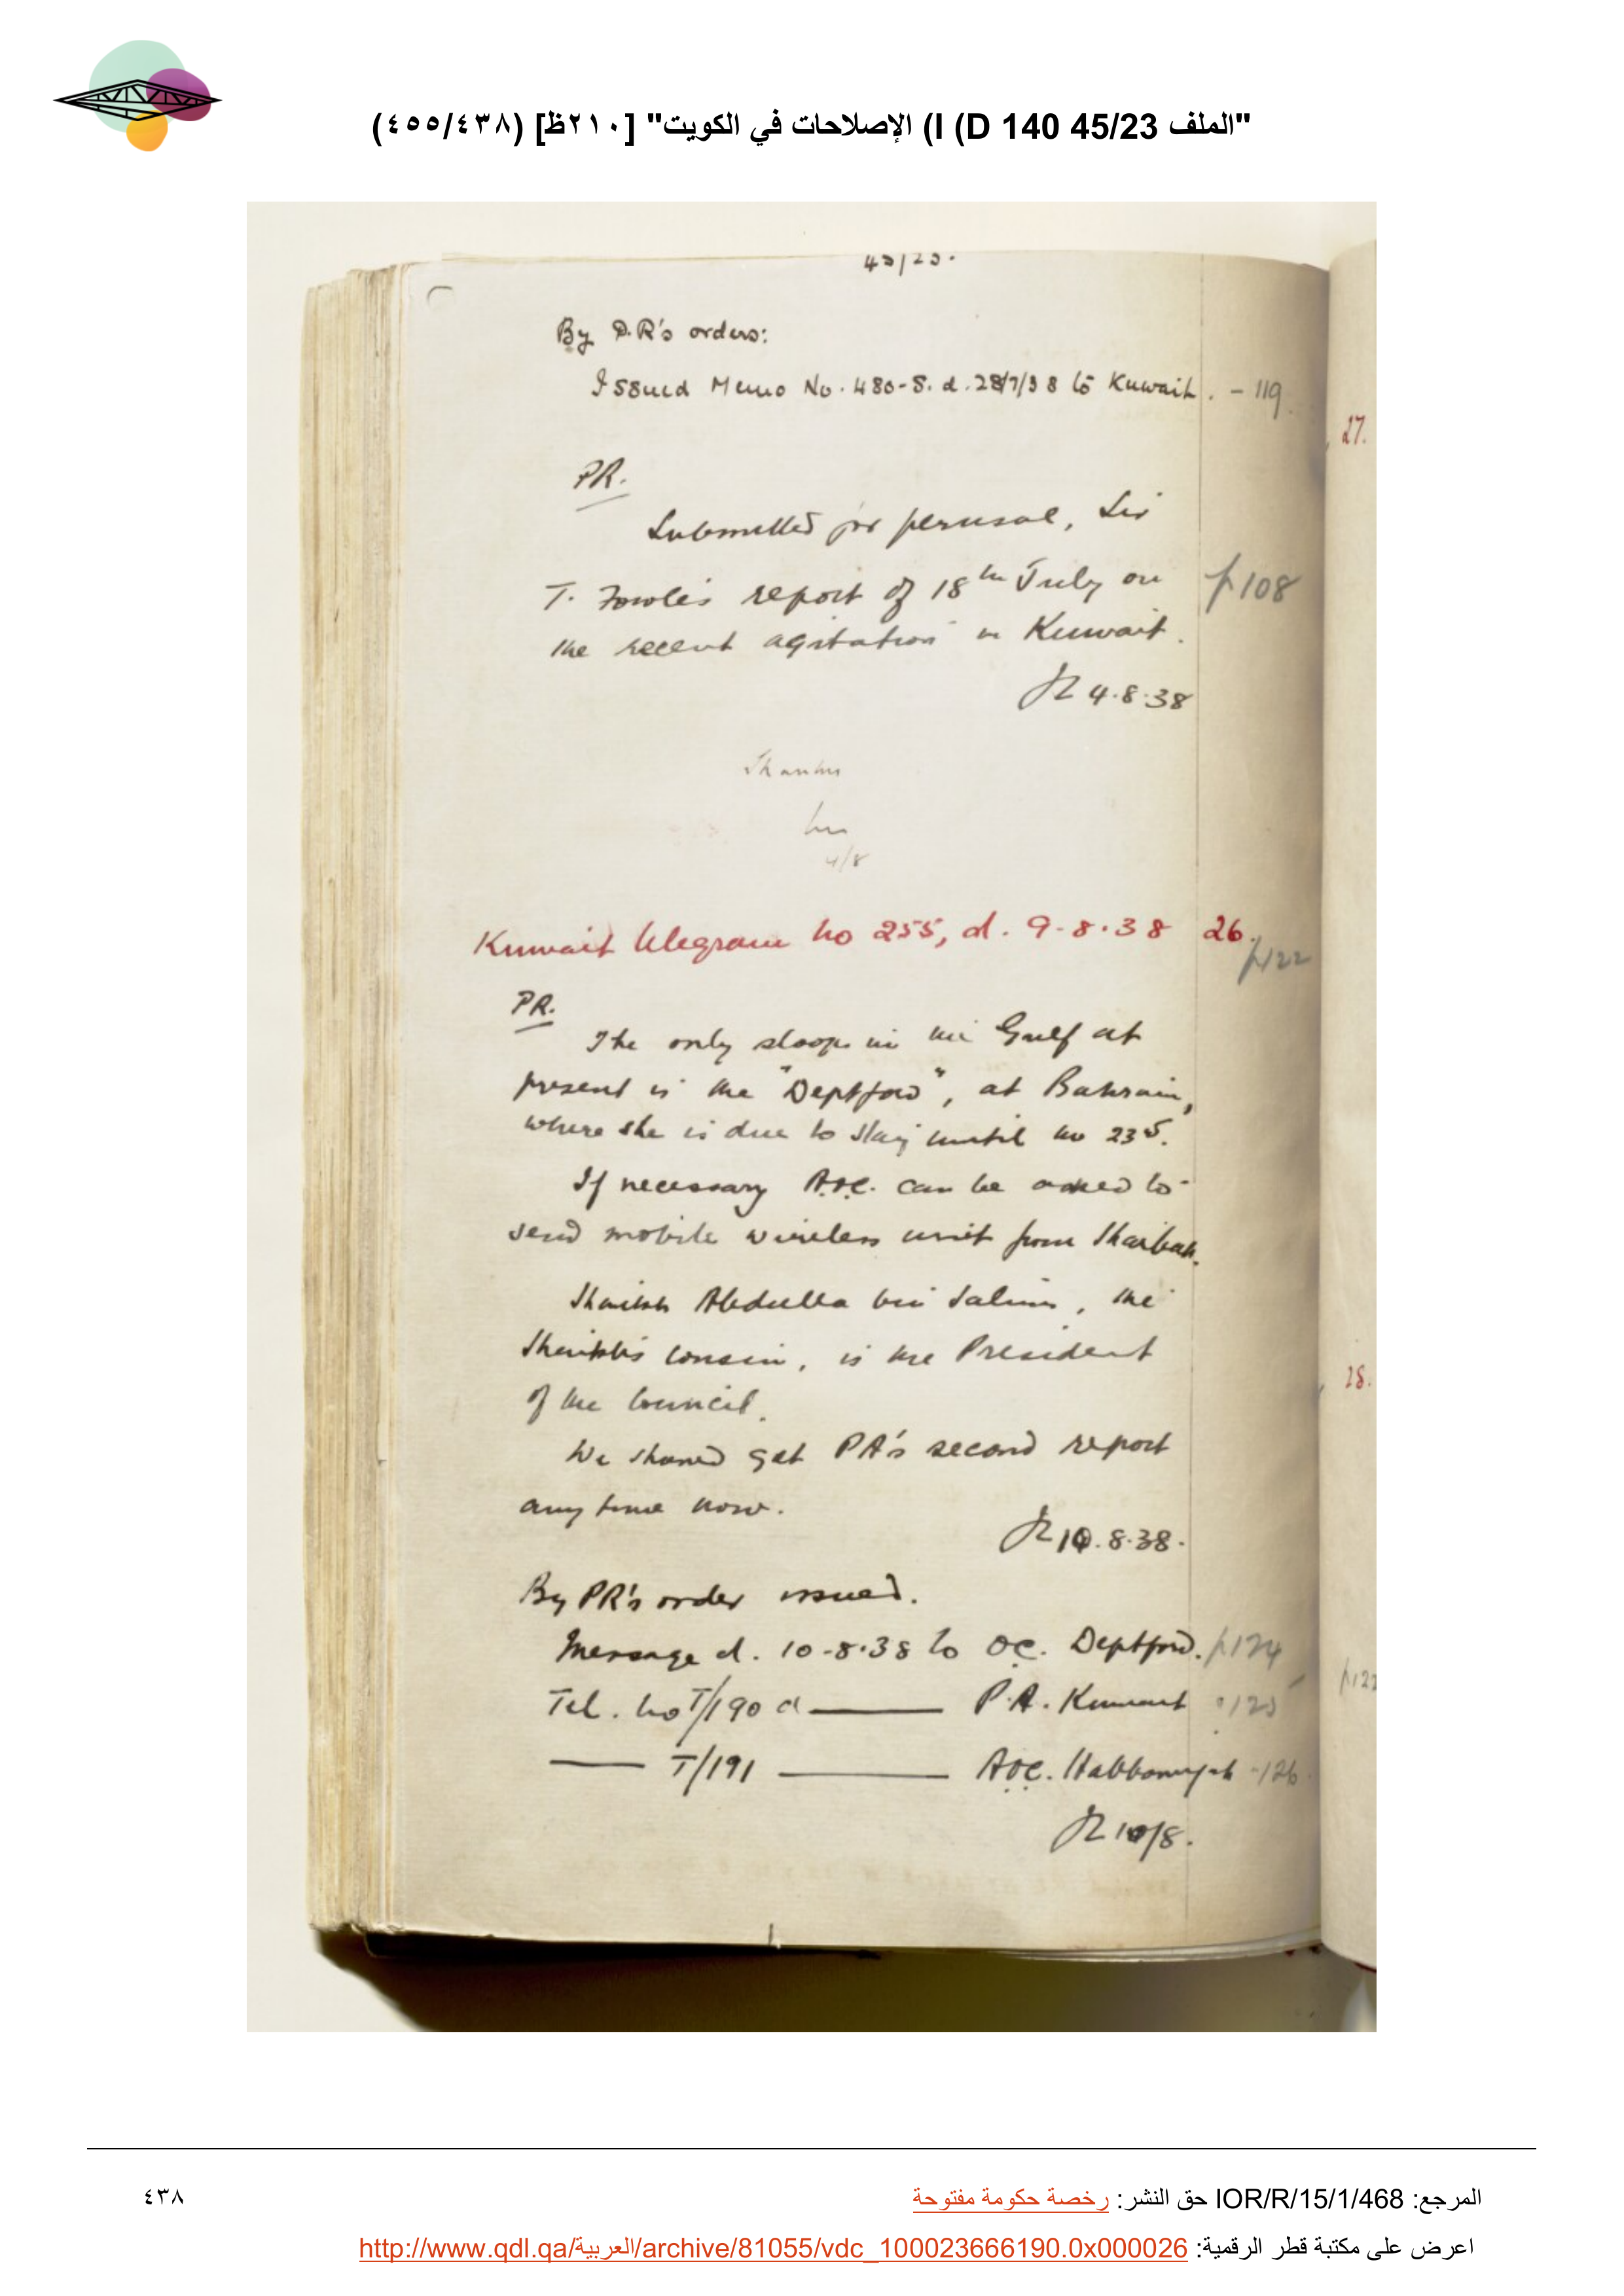 "الملف 45/23 I (D 140) الإصلاحات في الكويت" [٢١٠ظ] (٤٥٥/٤٣٨)
45/23.
By P.R's orders:
Issued Memo No. 480-S. d. 28/7/38 to Kuwait. - 119
27.
PR.
Submitted for perusal, Sir
T. Fowle's report of 18th July on p108
the recent agitation in Kuwait.
4.8.38
Thanks
4/8
Kuwait telegram no 255, d. 9-8-38 26.
p122
PR.
The only sloop in the Gulf at
present is the "Deptford", at Bahrain,
where she is due to stay until
If necessary A.O.C. can be asked to
send mobile wireless unit from Shaibah.
Shaikh Abdulla bin Salim, the
Shaikh's cousin, is the President
of the Council.
28.
We should get PA's second report
any time now.
10.8.38.
By PR's order issued.
Message d. 10-8-38 to O.C. Deptford. p124
Tel. no T/190 d —— P.A. Kuwait 125
—— T/191 —— A.O.C. Habbaniyah -126
10/8.
المرجع: IOR/R/15/1/468 حق النشر: رخصة حكومة مفتوحة
٤٣٨
اعرض على مكتبة قطر الرقمية: http://www.qdl.qa/العربية/archive/81055/vdc_100023666190.0x000026